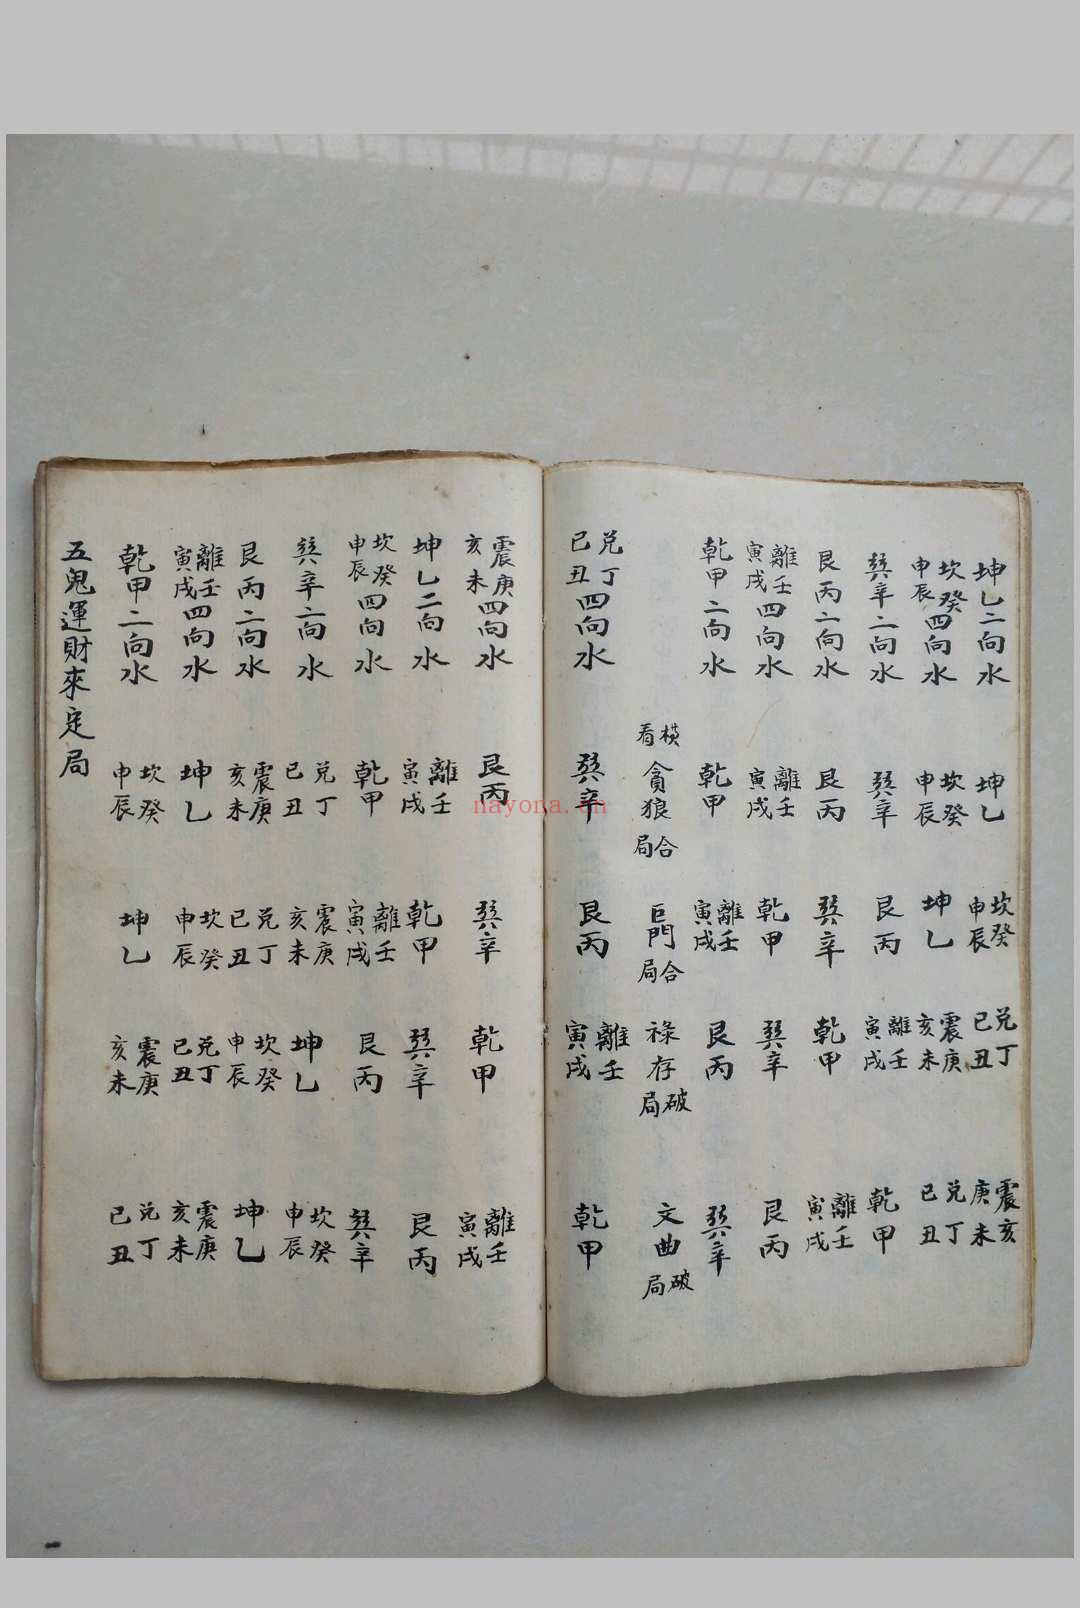 坤乙二向水 坤乙 坎癸申辰 兑丁巳丑 震亥庚未
坎癸申辰四向水 坎癸申辰 坤乙 震庚亥未 兑丁巳丑
巽辛二向水 巽辛 艮丙 離壬寅戌 乾甲
艮丙二向水 艮丙 巽辛 乾甲 離壬寅戌
離壬寅戌四向水 離壬寅戌 乾甲 巽辛 艮丙
乾甲二向水 乾甲 離壬寅戌 艮丙 巽辛
橫看 貪狼合局 巨門合局 祿存破局 文曲破局
兑丁巳丑四向水 巽辛 艮丙 離壬寅戌 乾甲
震庚亥未四向水 艮丙 巽辛 乾甲 離壬寅戌
坤乙二向水 離壬寅戌 乾甲 巽辛 艮丙
坎癸申辰四向水 乾甲 離壬寅戌 艮丙 巽辛
巽辛二向水 兑丁巳丑 震庚亥未 坤乙 坎癸申辰
艮丙二向水 震庚亥未 兑丁巳丑 坎癸申辰 坤乙
離壬寅戌四向水 坤乙 坎癸申辰 兑丁巳丑 震庚亥未
乾甲二向水 坎癸申辰 坤乙 震庚亥未 兑丁巳丑
五鬼運財來定局
nayona.cn